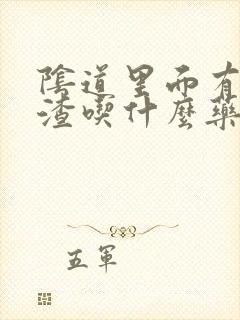 陰道里面有
渣喫什麼藥
五軍